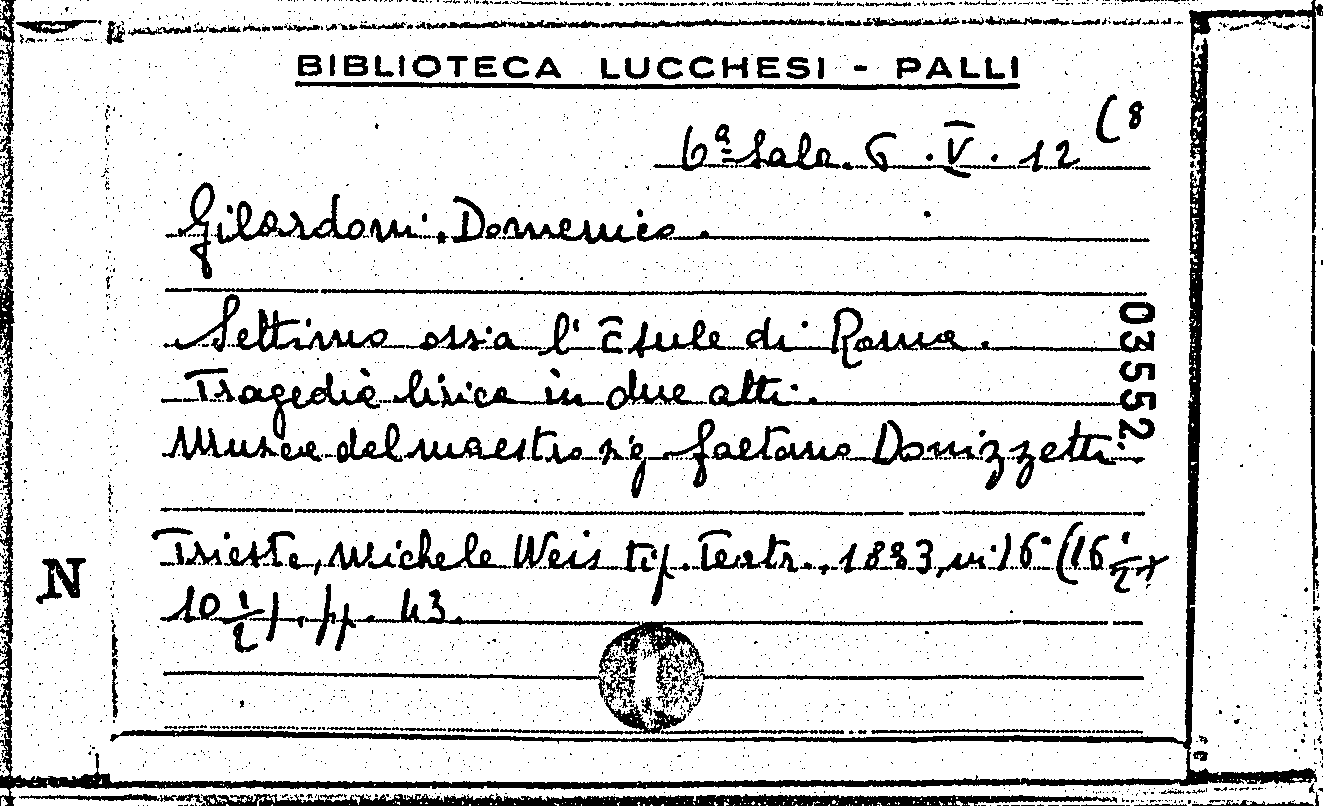 BIBLIOTECA LUCCHESI - PALLI
6ª Sala. 6. V. 12 (8
Gilardoni, Domenico.
Settimio ossia l'Esule di Roma.
Tragedia lirica in due atti.
Musica del maestro sig Gaetano Donizzetti.
03552
Trieste, Michele Weis tip. Teatr., 1833, in 16° (16 1/2 ×
10 1/2), pp. 43.
N